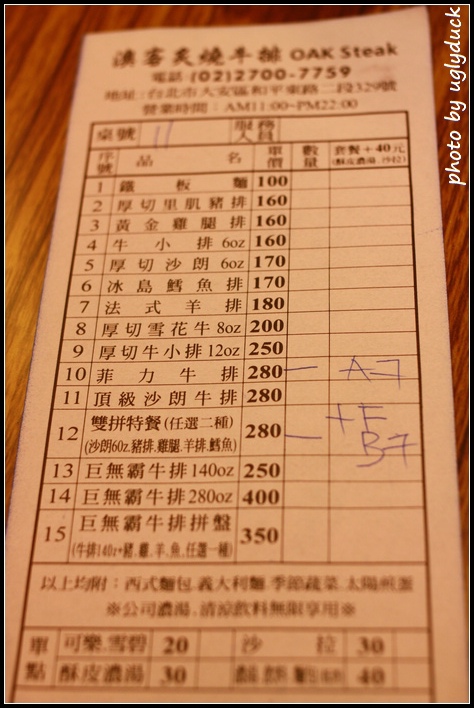 澳客炙燒牛排 OAK Steak
電話 (02)2700-7759
地址:台北市大安區和平東路二段329號
營業時間:AM11:00~PM22:00
桌號 11 服務人員
序號 品名 單價 數量 套餐+40元 (酥皮濃湯.沙拉)
1 鐵板麵 100
2 厚切里肌豬排 160
3 黃金雞腿排 160
4 牛小排 6oz 160
5 厚切沙朗 6oz 170
6 冰島鱈魚排 170
7 法式羊排 180
8 厚切雪花牛 8oz 200
9 厚切牛小排 12oz 250
10 菲力牛排 280 一 A7
11 頂級沙朗牛排 280
12 雙拼特餐(任選二種) (沙朗6oz.豬排.雞腿.羊排.鱈魚) 280 一 +E B7
13 巨無霸牛排 14oz 250
14 巨無霸牛排 28oz 400
15 巨無霸牛排拼盤 (牛排14oz+豬.雞.羊.魚.任選一種) 350
以上均附:西式麵包.義大利麵.季節蔬菜.太陽煎蛋
※公司濃湯.清涼飲料無限享用※
單點 可樂.雪碧 20 沙拉 30
酥皮濃湯 30 40
photo by uglyduck